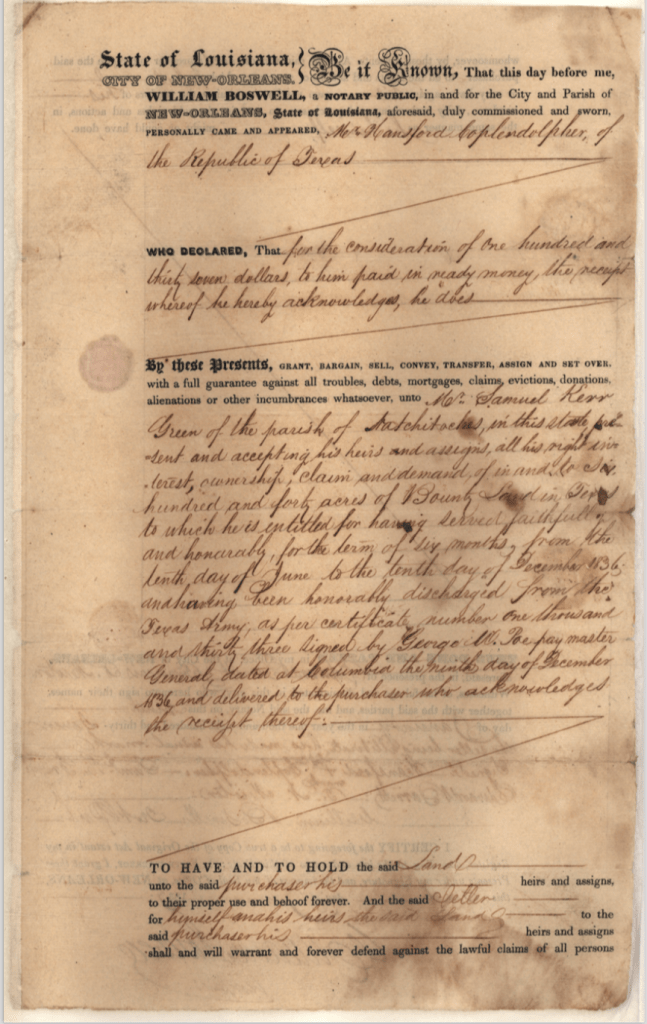 State of Louisiana, } Be it Known, That this day before me,
CITY OF NEW-ORLEANS.
WILLIAM BOSWELL, a NOTARY PUBLIC, in and for the City and Parish of
NEW-ORLEANS, State of Louisiana, aforesaid, duly commissioned and sworn,
PERSONALLY CAME AND APPEARED, Mr. Hansford Coplendolpher, of
the Republic of Texas
WHO DECLARED, That for the consideration of One hundred and
thirty seven dollars, to him paid in ready money, the receipt
whereof he hereby acknowledges, he does
By these Presents, GRANT, BARGAIN, SELL, CONVEY, TRANSFER, ASSIGN AND SET OVER.
with a full guarantee against all troubles, debts, mortgages, claims, evictions, donations,
alienations or other incumbrances whatsoever, unto Mr. Samuel Kerr
Green of the parish of Natchitoches, in this state, pre-
sent and accepting, his heirs and assigns, all his right in-
terest, ownership, claim and demand, of in and to Six
hundred and forty acres of Bounty Land in Texas
to which he is entitled for having served faithfully
and honorably, for the term of six months, from the
tenth day of June to the tenth day of December 1836,
and having been honorably discharged from the
Texas Army, as per certificate, number one thousand
and thirty three signed by George W. Poe pay master
General, dated at Columbia the ninth day of December
1836, and delivered to the purchaser who acknowledges
the receipt thereof:
TO HAVE AND TO HOLD the said Land
unto the said purchaser his heirs and assigns,
to their proper use and behoof forever. And the said Seller
for himself and his heirs, the said Land to the
said purchaser his heirs and assigns
shall and will warrant and forever defend against the lawful claims of all persons